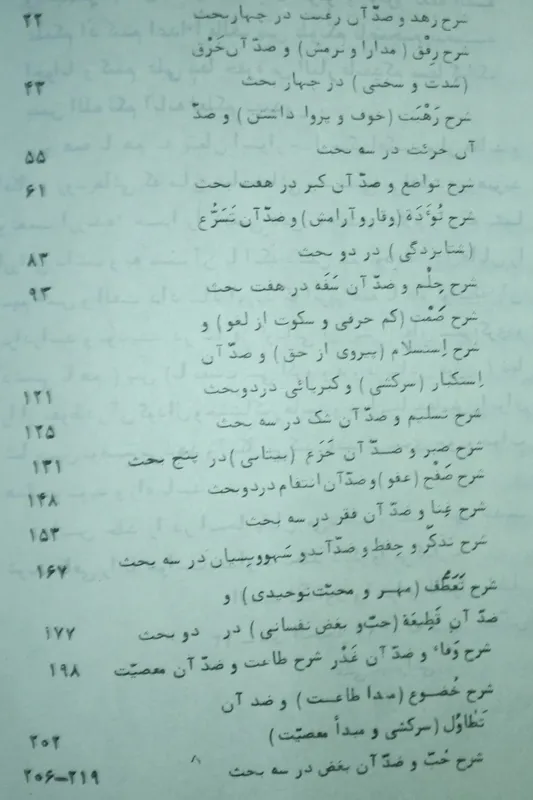 شرح زهد و ضدّ آن رغبت در چهار بحث ۲۲
شرح رِفْق ( مدارا و نرمش ) و ضدّ آن خَرْق
(شدت و سختی ) در چهار بحث ۴۳
شرح رَهْبَت (خوف و پروا داشتن ) و ضدّ
آن جرئت در سه بحث ۵۵
شرح تواضع و ضدّ آن کبر در هفت بحث ۶۱
شرح تُوءَدَة (وقار و آرامش) و ضدّ آن تَسَرُّع
(شتابزدگی ) در دو بحث ۸۳
شرح حِلْم و ضدّ آن سَفَه در هفت بحث ۹۳
شرح صَمْت (کم حرفی و سکوت از لغو ) و
شرح اِستسلام (پیروی از حق ) و ضدّ آن
اِستکبار (سرکشی ) و کبریائی در دو بحث ۱۲۱
شرح تسلیم و ضدّ آن شک در سه بحث ۱۲۵
شرح صبر و ضدّ آن جَزَع (بیتابی ) در پنج بحث ۱۳۱
شرح صَفْح (عفو ) و ضدّ آن انتقام در دو بحث ۱۴۸
شرح غِنا و ضدّ آن فقر در سه بحث ۱۵۳
شرح تذکّر و حِفظ و ضدّ آندو سَهو و نِسیان در سه بحث ۱۶۷
شرح تَعَطُّف (مهر و محبّت توحیدی ) و
ضدّ آن قَطِیعَة (حبّ و بغض نفسانی ) در دو بحث ۱۷۷
شرح وَفاء و ضدّ آن غَدْر شرح طاعت و ضدّ آن معصیّت ۱۹۸
شرح خُضوع (مبدأ طاعت ) و ضد آن
تَطاوُل (سرکشی و مبدأ معصیّت ) ۲۰۲
شرح حُبّ و ضدّ آن بغض در سه بحث ۲۰۶-۲۱۹